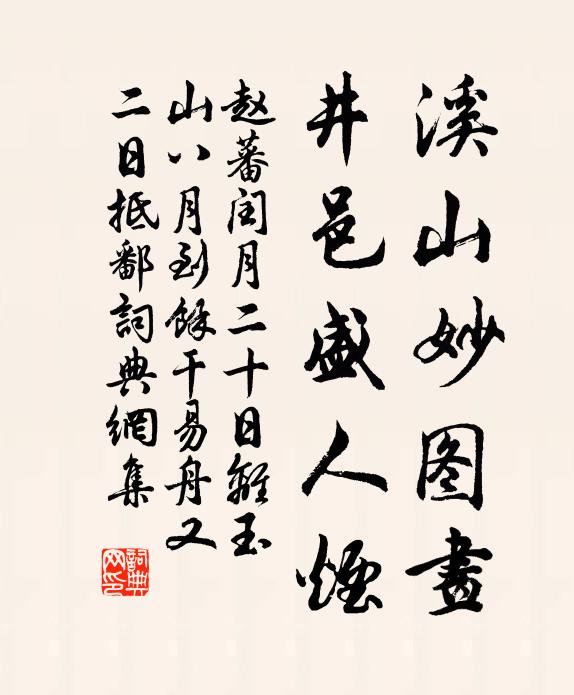 溪山妙图畫
井邑盛人煙
赵蕃闰月二十日離玉
山八月到餘干易舟又
二日抵鄱詞典網集
詞典
网印